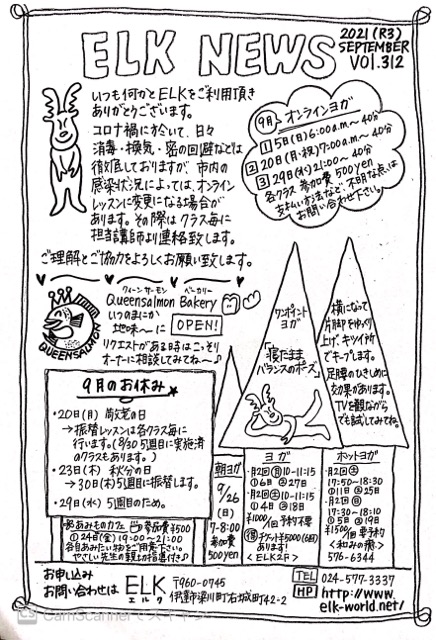 ELK NEWS
2021 (R3)
SEPTEMBER
VOL.312
いつも何かとELKをご利用頂き
ありがとうございます。
コロナ禍に於いて、日々
消毒・換気・密の回避などは
徹底しておりますが、市内の
感染状況によっては、オンライン
レッスンに変更になる場合が
あります。その際はクラス毎に
担当講師より連絡致します。
ご理解とご協力をよろしくお願い致します。
9月 オンラインヨガ
①5日(日)6:00a.m.〜40分
②20日(月・祝)7:00a.m.〜40分
③29日(水)21:00〜40分
各クラス 参加費 500yen
支払い方法など、不明な点は
お問い合わせ下さい。
クィーンサーモン ベーカリー
Queensalmon Bakery
いつのまにか
地味〜に OPEN!
リクエストがある時はこっそり
オーナーに相談してみてね〜♪
QUEENSALMON
ワンポイント
ヨガ
「寝たまま
バランスのポーズ」
横になって
片脚をゆっくり
上げ、キツイ所
でキープします。
足腰のひきしめに
効果があります。
TVを観ながら
でも試してみてね。
9月のお休み
・20日(月) 敬老の日
→振替レッスンは各クラス毎に
行います。(8/30 5週目に実施済
のクラスもあります。)
・23日(木) 秋分の日
→30日(木)5週目に振替します。
・29日(水) 5週目のため。
あみものカフェ 参加費¥500
①24日(金)19:00〜21:00
各自あみたい物をご用意下さい。
やさしい先生の親上の指導付き♪
朝ヨガ
9/26
(日)
7-8:00
参加費
500yen
ヨガ
・月2回(月)10-11:15
①6日 ②27日
・月2回(土)10-11:15
①4日 ②18日
¥1000/1回 予約不要
(得)チケット5000(6回)
あります!
<ELK2F>
ホットヨガ
・月2回(土)
17:50-18:30
①11日 ②25日
・月2回(日)
17:30-18:10
①5日 ②19日
¥1500/1回 要予約
<和みの癒>
576-6344
お申し込み
お問い合わせは
ELK
エルク
〒960-0745
伊達市梁川町右城町42-2
TEL 024-577-3337
HP http://www.
elk-world.net/
CS CamScannerでスキャン